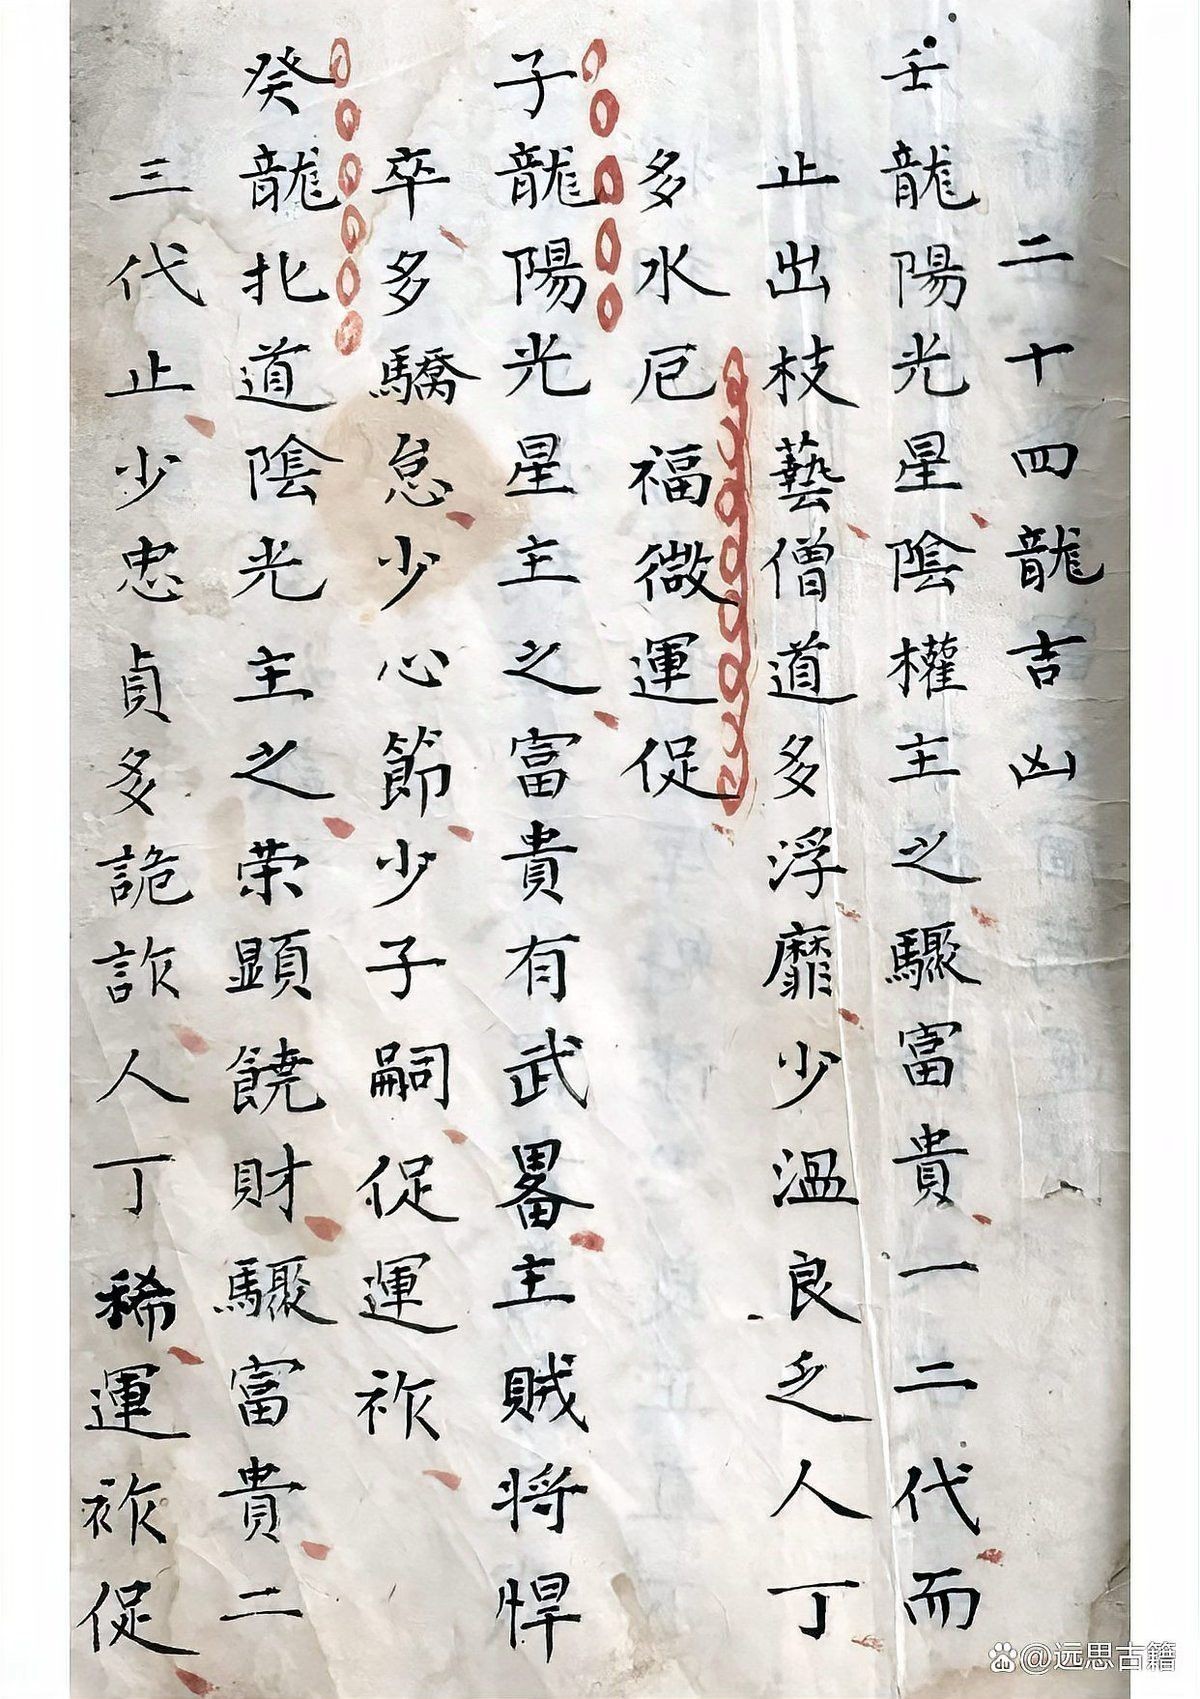 二十四龍吉凶
壬龍陽光星陰權主之驟富貴一二代而
止出枝藝僧道多浮靡少溫良乏人丁
多水厄福微運促
子龍陽光星主之富貴有武畧主賊将悍
卒多驕怠少心節少子嗣促運祚
癸龍北道陰光主之荣顯饒財驟富貴二
三代止少忠貞多詭詐人丁稀運祚促
du @远思古籍